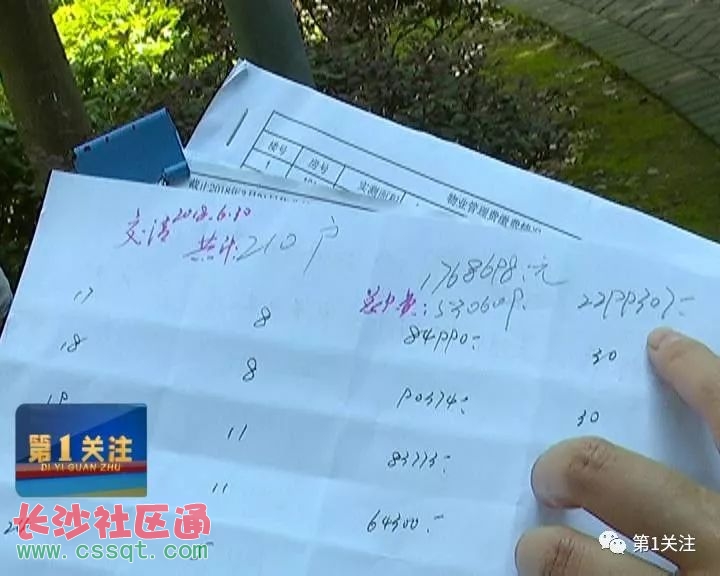 楼号 房号 实测面积 物业管理费缴费情况
1
截止2018年
交清2018.6.30
共计210户
1768698:元
总户费:530609: 2299307:
17 8 84990: 30
18 8 90374: 30
19 11 83773:
11 64300:
第1关注
DI YI GUAN ZHU
长沙社区通
www.cssqt.com
第1关注